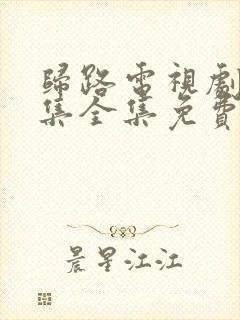 歸路電視劇
集全集免費
晨星江江